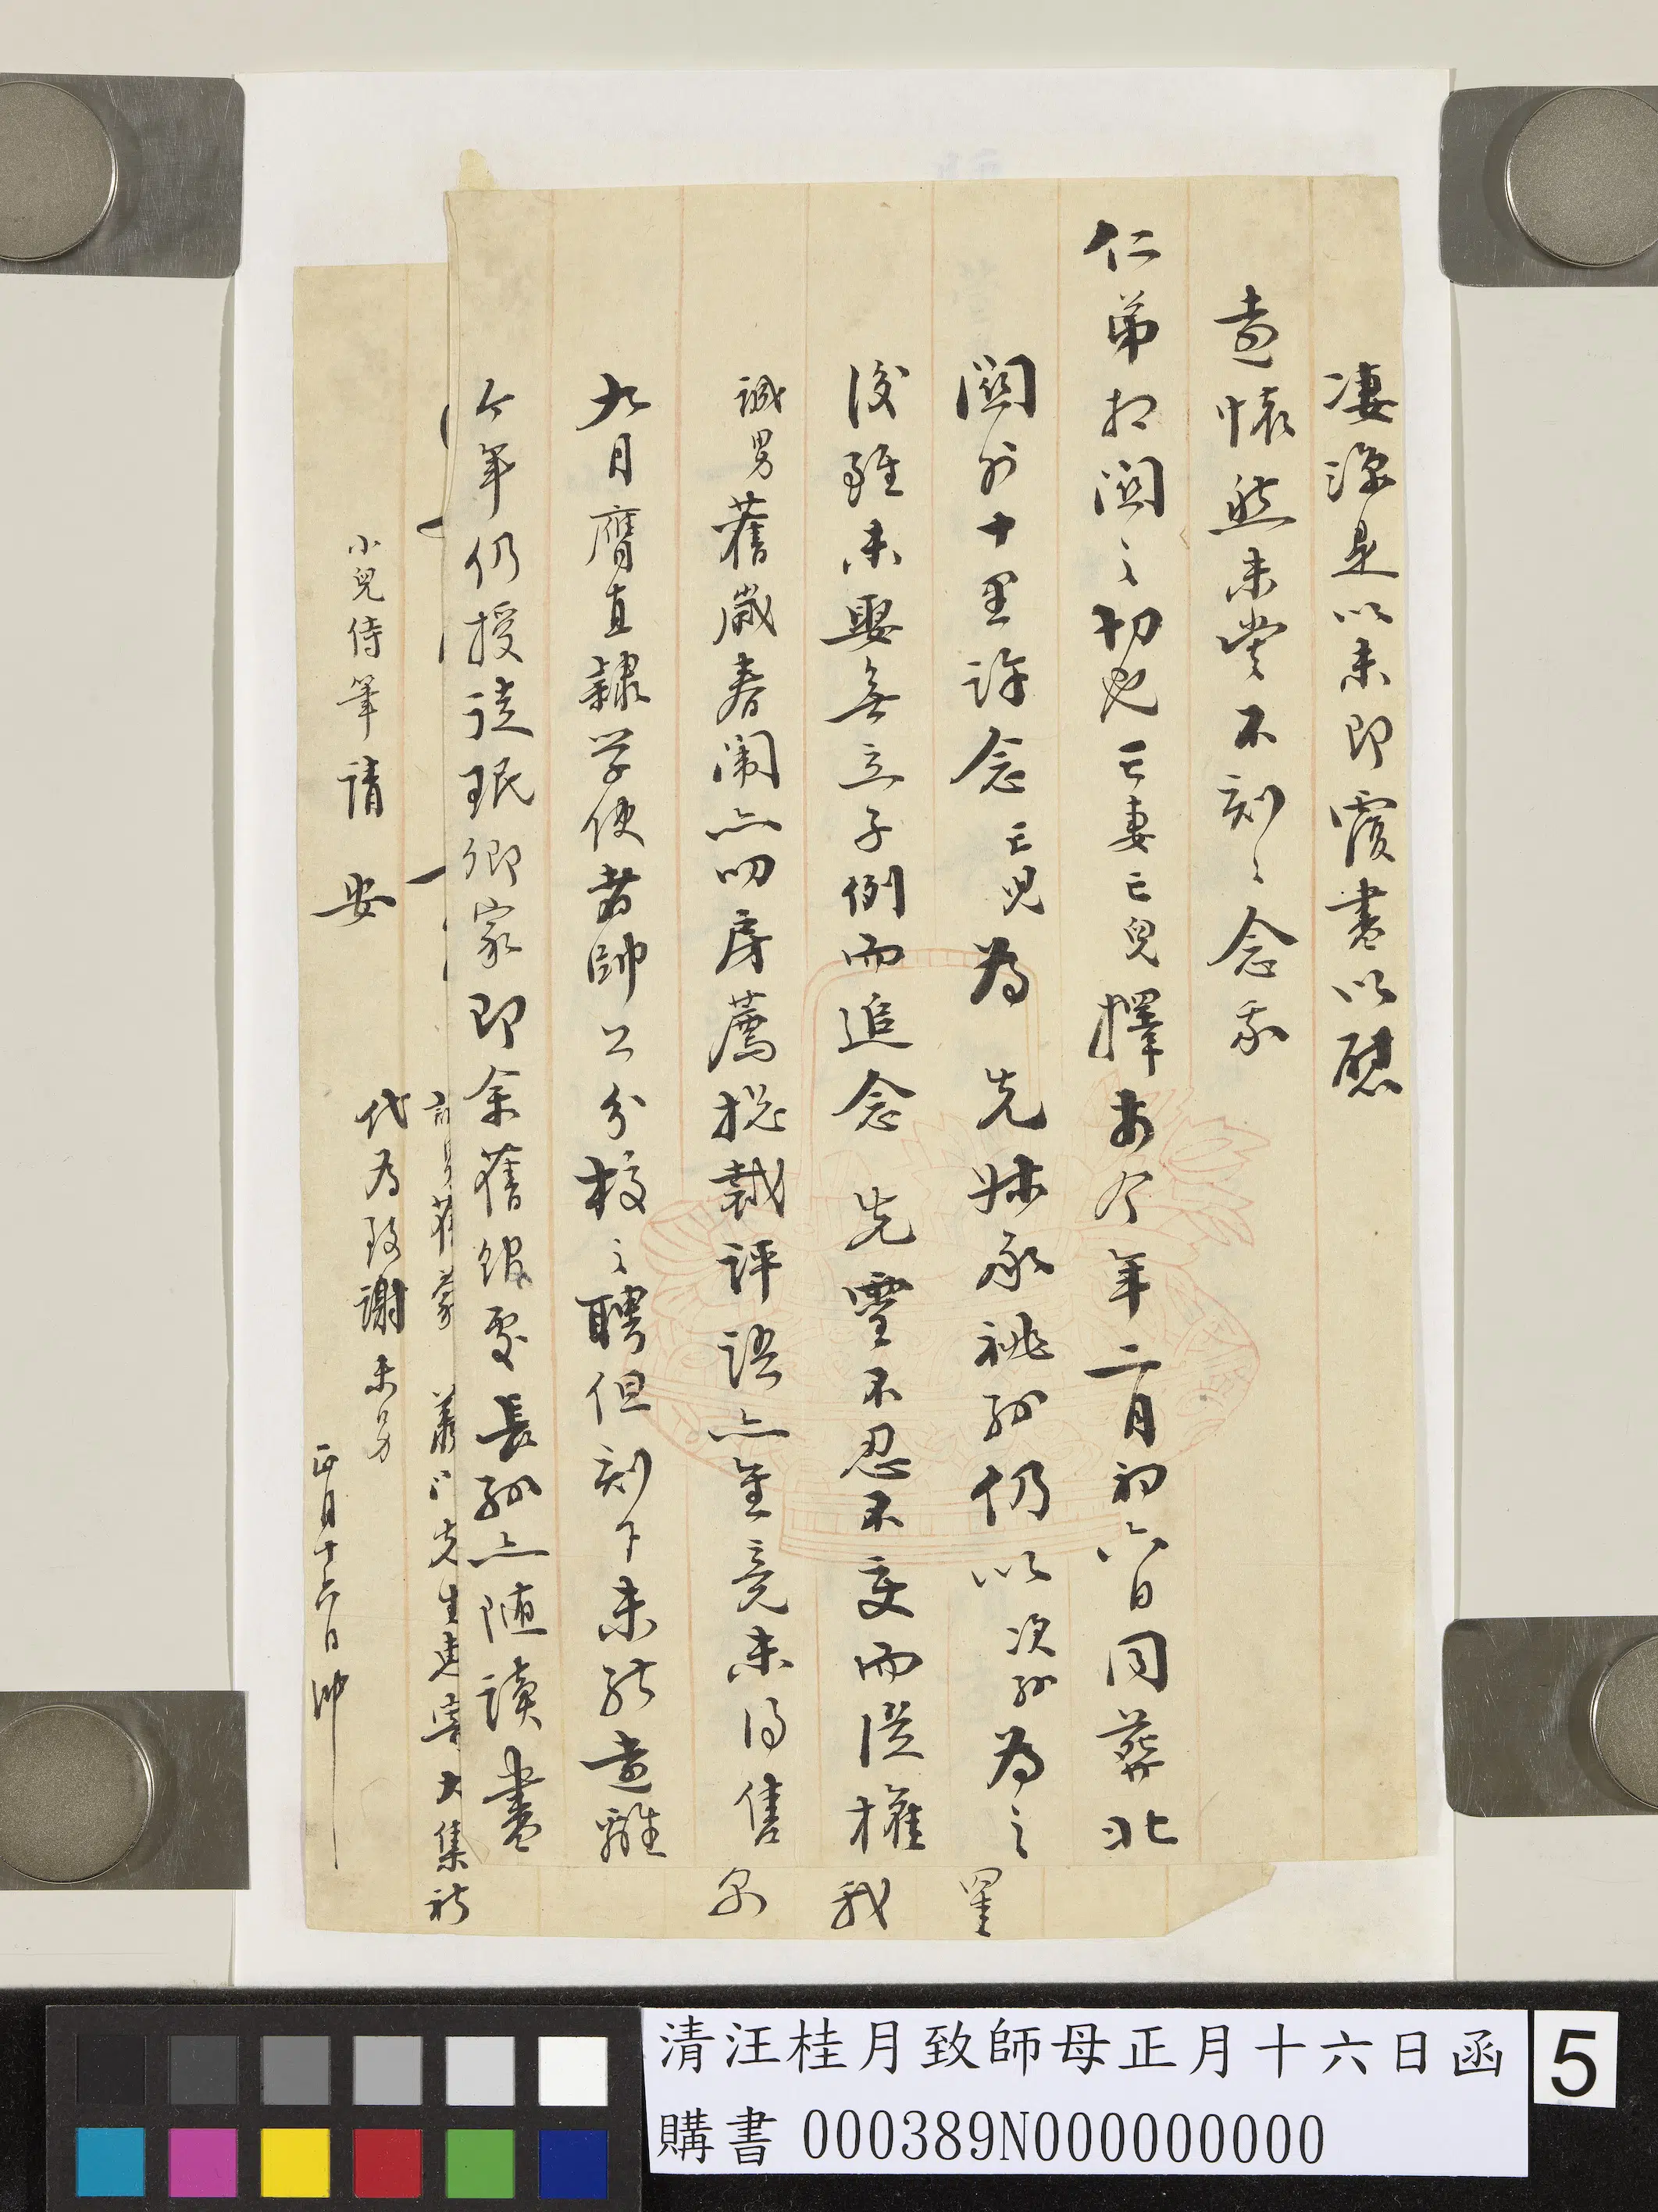 凄深是以未即覆書以慰
遠懷然未嘗不刻刻念我
仁弟相關之切也亡妻亡兒擇於今年二月初六日同葬北
關外十里許念亡兒為 先妹承祧孫仍以次孫為之
後雖未娶無立子例而追念 先靈不忍不變而從權
誠男舊歲春闈亦叨房薦總裁評語亦無竟未得售
九月膺直隸学使者帥公分校之聘但刻下未能遠離
今年仍授徒珉卿家即余舊館處長孫亦隨讀書
舊蒙 先生遠寄大集祈
代為致謝未另
小兒侍筆請 安
正月十六日沖
清汪桂月致師母正月十六日函
購書 000389N000000000
5